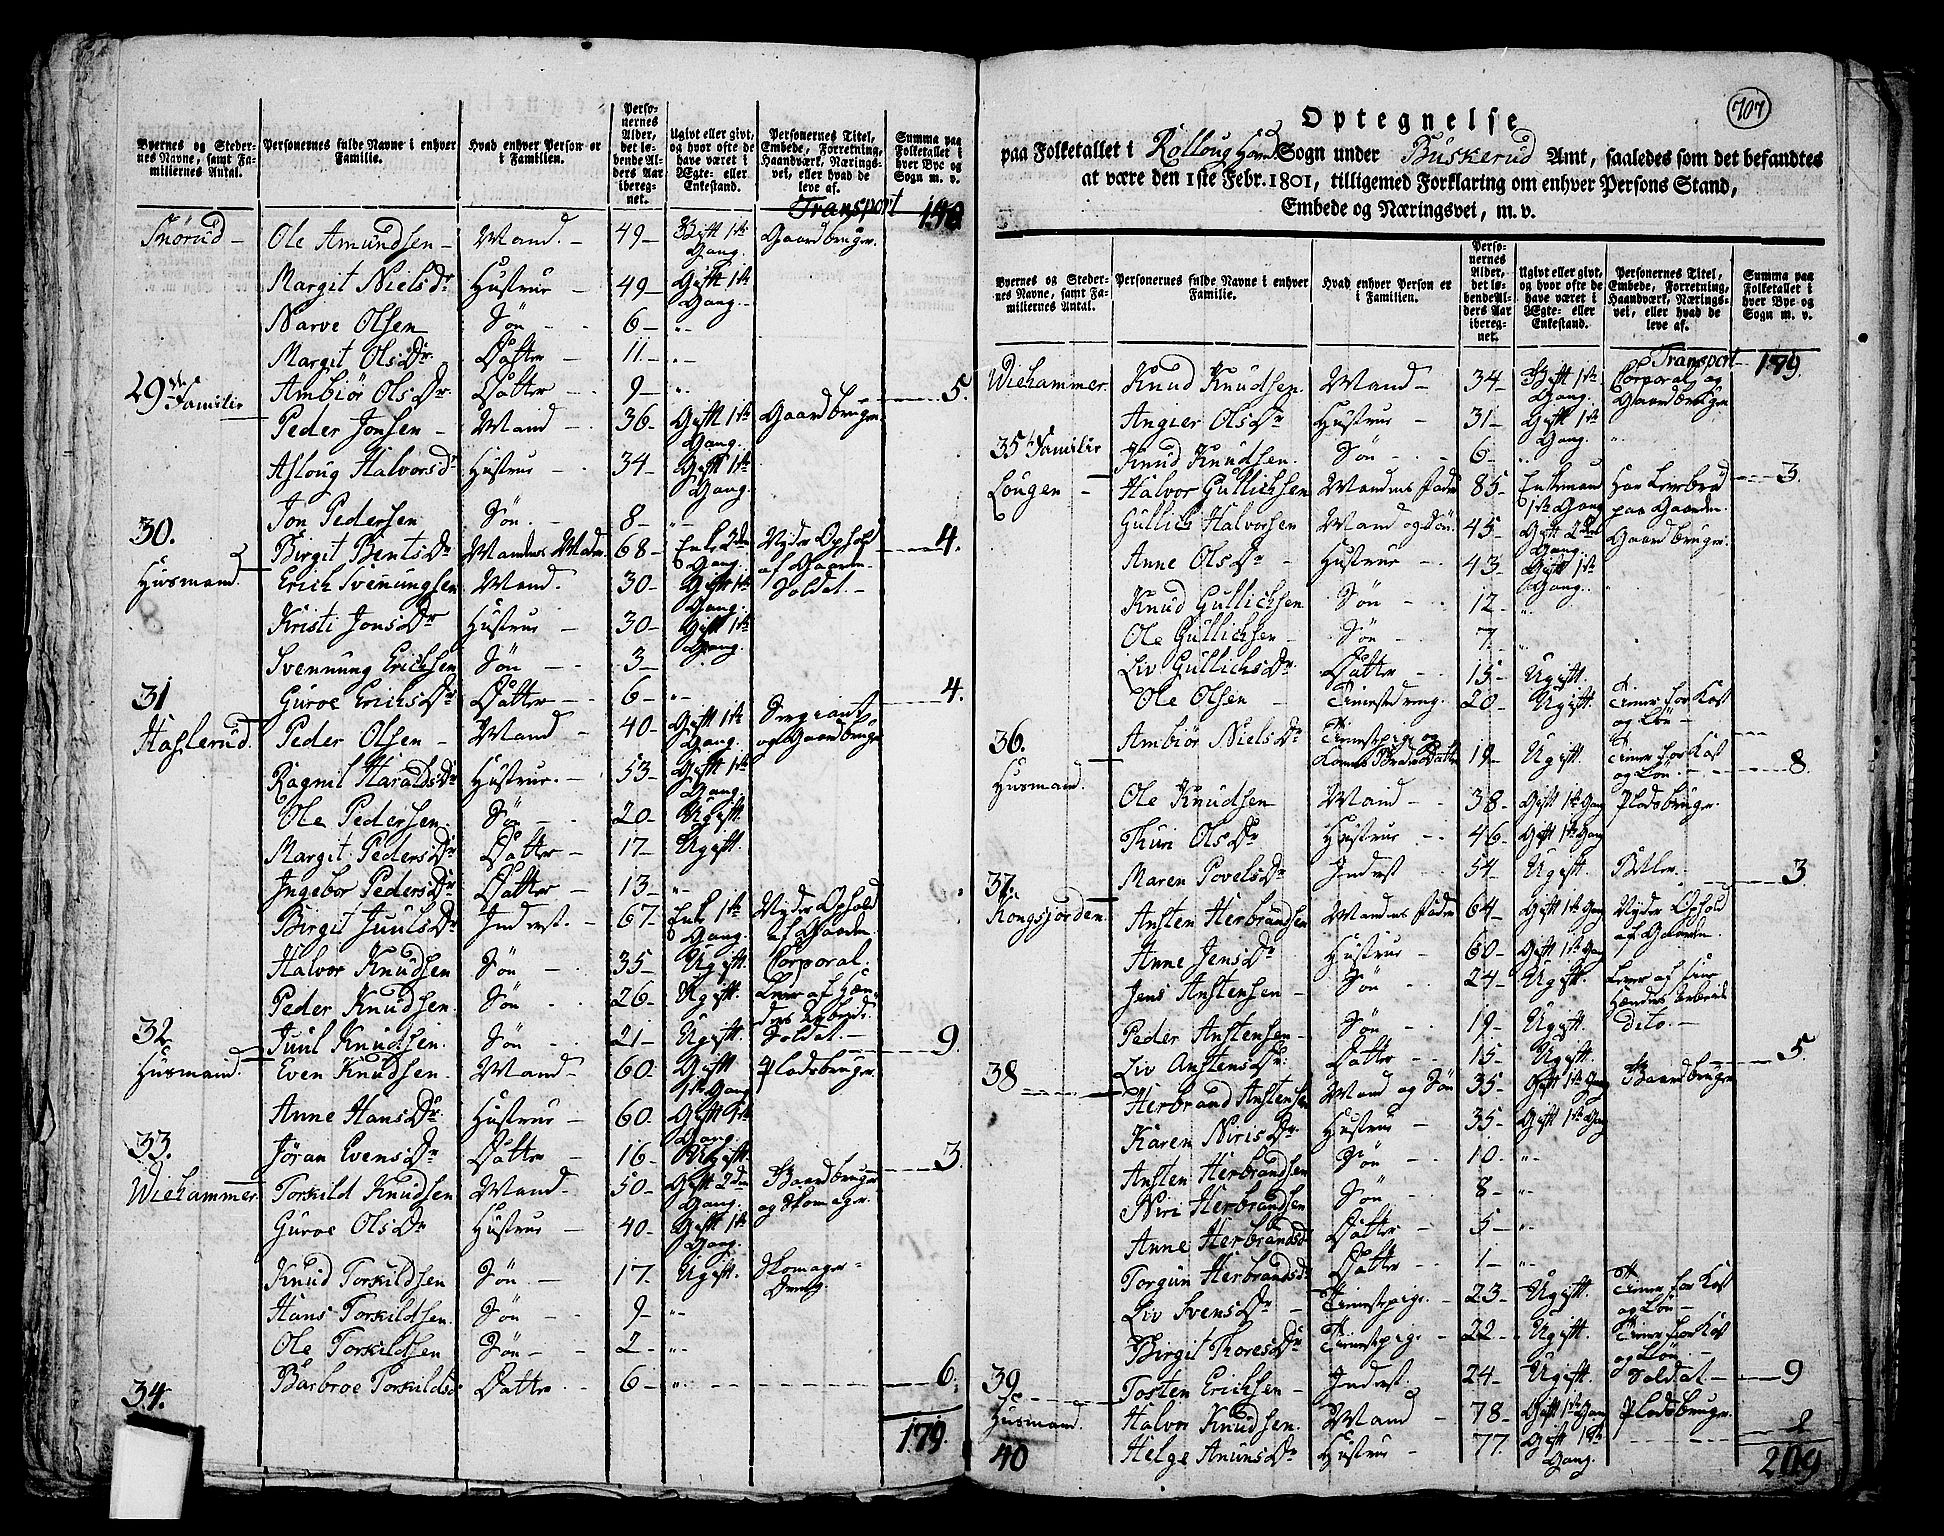 Byernes og Steder-
nes Navne, samt Fa-
miliernes Antal.
Personernes fulde Navne i enhver
Familie.
Hvad enhver Person er
i Familien.
Perso-
nernes
Alder,
det lø-
bende Al-
ders Aar
ibereg-
net.
Ugivt eller givt,
og hvor ofte de
have været i
Ægte- eller
Enkestand.
Personernes Titel,
Embede, Forretning,
Haandværk, Nærings-
vei, eller hvad de
leve af.
Summa paa
Folketallet i
hver Bye og
Sogn m. v.
Transport 148
Ole Amundsen - Mand - 49 - Gift 1ste Gang. Gaardbruger.
Margit Nielsdr Hustrue 49 - Gift 1ste Gang.
Narve Olsen Søn - 6 - "
Margit Olsdr Datter - 11 - "
29de Familie Ambiör Olsdr. Datter - 9 - " 5.
Peder Jonsen - Mand - 36 Gift 1ste Gang. Gaardbruger
Asloug Halvorsdr Hustrue - 34 - Gift 1ste Gang.
Jon Pedersen Søn. - 8 - "
30. Birgit Bentsdr Mandens Moder. 68 - Enke 2den Gang. Nyder Ophold af Gaarden 4.
Husmand. Erich Svenungsen Mand. 30 - Gift 1ste Gang. Soldat. -
Kristi Jonsdr Hustrue - 30 - Gift 1ste Gang.
Svennung Erichsen Søn - 3 -
31 Guroe Erichsdr Datter - 6 - " 4.
Haslerud. Peder Olsen - Mand - 40 - Gift 1ste Gang. Sergiant og Gaardbruger
Ragnil Haraldsdr Hustrue. - 53 - Gift 1ste Gang.
Ole Pedersen. Søn - 20 - Ugift.
Margit Pedersdr Datter - 17 - Ugift.
Ingebor Pedersdr Datter - 13 - "
Birgit Juulsdr Inderst. - 67. Enke 1ste Gang. Nyder Ophold af Gaarden.
Halvor Knudsen Søn - 35 - Ugift. Corporal.
Peder Knudsen. Søn - 26 - Ugift. Lever af Hæn-
ders Arbeide.
32 Juul Knudsen. Søn - 21 - Ugift. Soldat. - 9.
Husmand. Even Knudsen. Mand - 60 - Gift 1ste Gang Pladsbruger.
Anne Hansdr. Hustrue - 60. Gift 1ste Gang.
33. Jöran Evensdr Datter - 16 - Ugift. 3.
Wiehammer. Torkild Knudsen Mand - 50 - Gift 2den Gang. Gaardbruger og Skomager.
Guroe Olsdr Hustrue - 40 - Gift 1ste Gang.
Knud Torkildsen Søn. - 17 - Ugift. Skomager-
Dreng
Hans Torkildsen. Søn - 9 - "
Ole Torkildsen Søn - 2 - "
34. Barbroe Torkildsdr Datter - 6 - " 6.
179.
707
Optegnelse
paa Folketallet i Rolloug Hoved Sogn under Buskerud Amt, saaledes som det befandtes
at være den 1ste Febr. 1801, tilligemed Forklaring om enhver Persons Stand,
Embede og Næringsvei, m. v.
Byernes og Steder-
nes Navne, samt Fa-
miliernes Antal.
Personernes fulde Navne i enhver
Familie.
Hvad enhver Person er
i Familien.
Perso-
nernes
Alder,
det lø-
bende Al-
ders Aar
ibereg-
net.
Ugivt eller givt,
og hvor ofte de
have været i
Ægte- eller
Enkestand.
Personernes Titel,
Embede, Forretning,
Haandværk, Nærings-
vei, eller hvad de
leve af.
Summa paa
Folketallet i
hver Bye og
Sogn m. v.
Transport 179.
Wiehammer. Knud Knudsen. Mand - 34 - Gift 1ste Gang. Corporal og Gaardbruger
Angier Olsdr Hustrue - 31 - Gift 1ste Gang.
35te Familie Knud Knudsen. Søn - 6 - " 3.
Lougen - Halvor Gullichsen Mandens Fader 85 - Enkemand 1ste Gang Har Levebrød paa Gaarden.
Gullich Halvorsen Mand og Søn. 45 - Gift 2den Gang. Gaardbruger.
Anne Olsdr - Hustrue - 43 - Gift 1ste Gang.
Knud Gullichsen Søn - 12 - "
Ole Gullichsen - Søn - 7 - "
Liv Gullichsdr Datter - 15 - Ugift.
Ole Olsen - Tienestedreng. 20 - Ugift. Tiener for Kost og Løn -
36. Ambiör Nielsdr Tienestepige og Konens Broderdatter 19 - Ugift. Tiener for Kost og Løn. - 8.
Husmand. Ole Knudsen Mand - 38 - Gift 1ste Gang Pladsbruger.
Thuri Olsdr Hustrue - 46 - Gift 1ste Gang
37. Maren Povelsdr Inderst - 54 - Ugift. Betler. 3.
Kongsjorden. Ansten Herbrandsen Mandens Fader 64 - Gift 1ste Gang Nyder Ophold af Gaarden.
Anne Jensdr Hustrue - 60 - Gift 1ste Gang
Jens Anstensen - Søn - 24 - Ugift. Lever af sine Hænders Arbeide
Peder Anstensen - Søn - 19 - Ugift. dito. -
38 Liv Anstensdr. Datter - 15 - Ugift. 5
Herbrand Anstensen Mand og Søn 35 - Gift 1ste Gang Gaardbruger
Karen Nirisdr. Hustrue - 35 - Gift 1ste Gang
Ansten Herbrandsen Søn - 10. "
Niri Herbrandsen Søn - 8 - "
Anne Herbrandsdr Datter - 5 - "
Torgun Herbrandsdr Datter - 1 - "
Liv Svensdr - Tienestepige. - 23 - Ugift. Tiener for Kost og Løn -
Birgit Thoresdr Tienestepige - 22 - Ugift. Tiener for Kost og Løn.
39. Tosten Erichsen - Inderst. 24 - Ugift. Soldat - 9
Husmand. Halvor Knudsen. Mand - 78 - Gift 1ste Gang Pladsbruger.
40 Helge Amunsdr Hustrue - 77. Gift 1ste Gang. 2
209